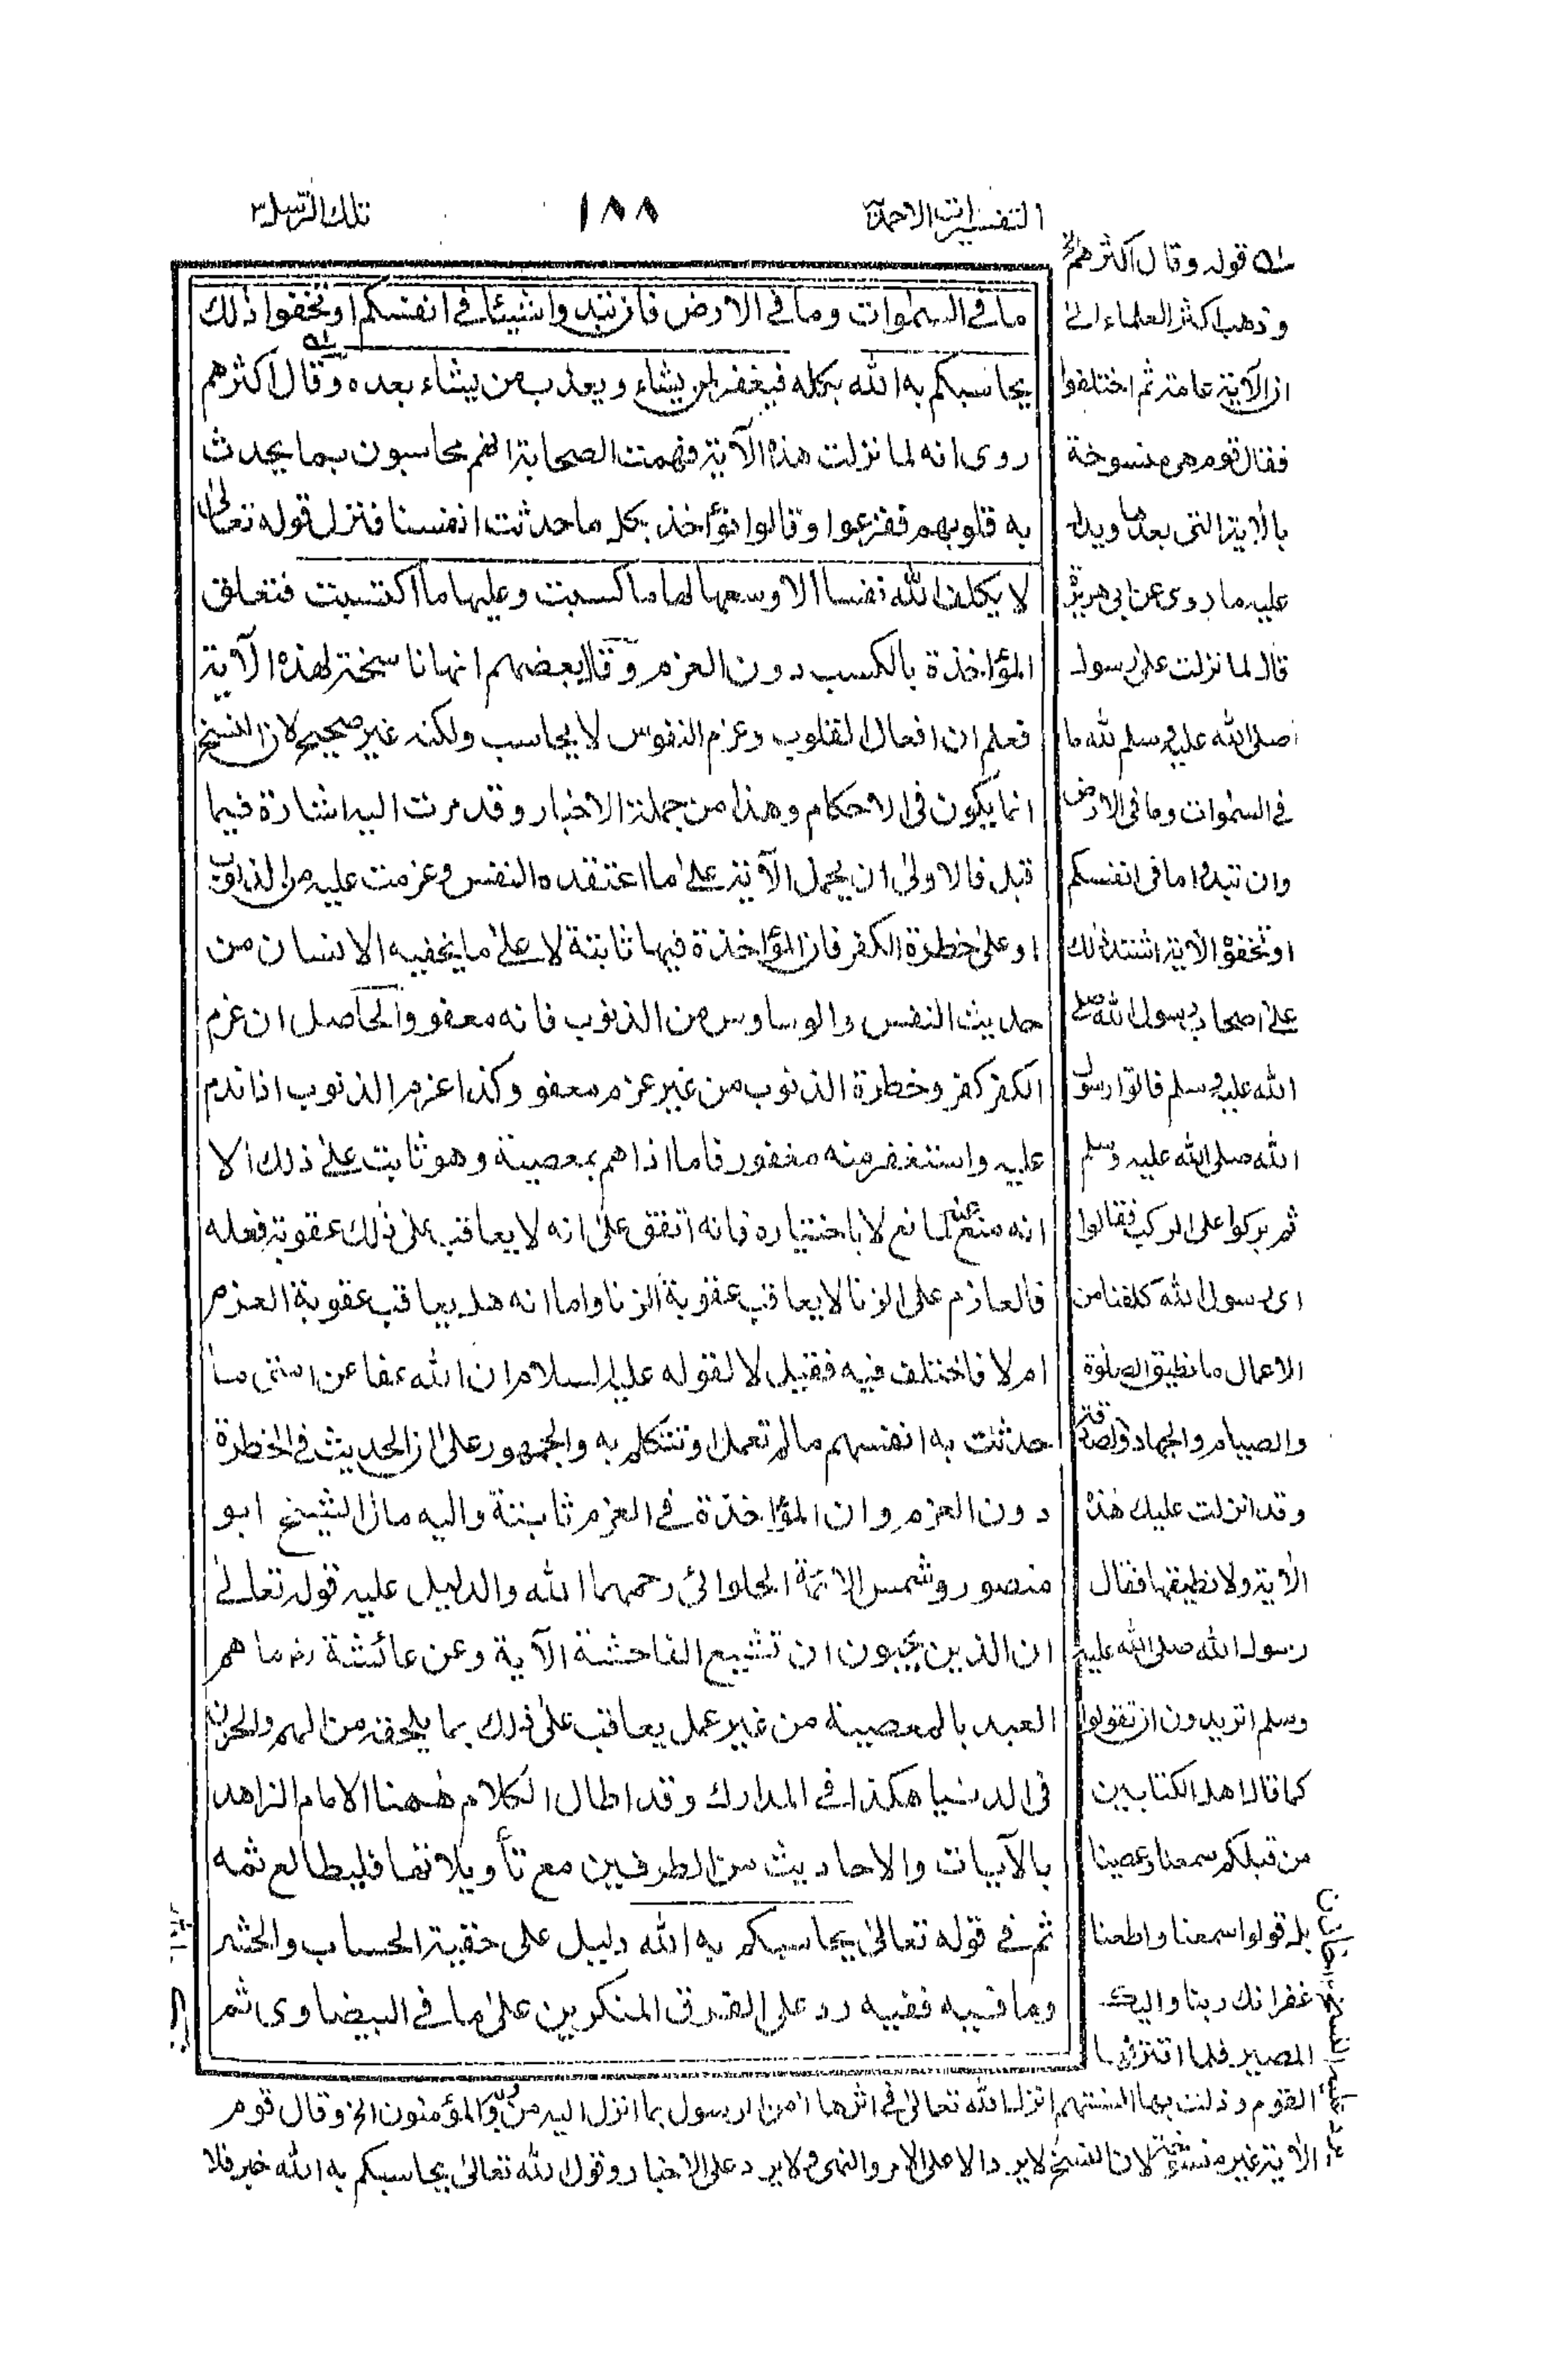 التفسيرات الاحمدية
١٨٨
تلك الرسل ٣
ما في السمٰوات وما في الارض فان تبدوا شيئا في انفسكم او تخفوا ذلك
يحاسبكم به الله بكله فيغفر لمن يشاء ويعذب من يشاء بعده وقال اكثرهم
روى انه لما نزلت هذه الآية فهمت الصحابة انهم محاسبون بما يحدث
به قلوبهم ففزعوا وقالوا نؤاخذ بكل ما حدثت انفسنا فنزل قوله تعالى
لا يكلف الله نفسا الا وسعها لها ما كسبت وعليها ما اكتسبت فتعلق
المؤاخذة بالكسب دون العزم وقال بعضهم انها ناسخة لهذه الآية
فعلم ان افعال القلوب وعزم النفوس لا يحاسب ولكنه غير صحيح لان النسخ
انما يكون فى الاحكام وهذا من جملة الاخبار وقد مرت اليه اشارة فيما
قبل فالاولىٰ ان يحمل الآية علىٰ ما اعتقده النفس وعزمت عليه من الذنوب
او علىٰ خطرة الكفر فان المؤاخذة فيها ثابتة لا علىٰ ما يخفيه الانسان من
حديث النفس والوساوس من الذنوب فانه معفو والحاصل ان عزم
الكفر كفر وخطرة الذنوب من غير عزم معفو وكذا عزم الذنوب اذا ندم
عليه واستغفر منه مغفور فاما اذا هم بمعصية وهو ثابت علىٰ ذلك الا
انه منع عنه لمانع لا باختياره فانه اتفق علىٰ انه لا يعاقب علىٰ ذلك عقوبة فعله
فالعازم على الزنا لا يعاقب عقوبة الزنا واما انه هل يعاقب عقوبة العزم
ام لا فاختلف فيه فقيل لا لقوله عليه السلام ان الله عفا عن امتى ما
حدثت به انفسهم ما لم تعمل او تتكلم به والجمهور علىٰ ان الحديث فى الخطرة
دون العزم وان المؤاخذة فى العزم ثابتة واليه مال الشيخ ابو
منصور وشمس الائمة الحلوائى رحمهما الله والدليل عليه قوله تعالىٰ
ان الذين يحبون ان تشيع الفاحشة الآية وعن عائشة رض ما هم
العبد بالمعصية من غير عمل يعاقب علىٰ ذلك بما يلحقه من الهم والحزن
فى الدنيا هكذا فى المدارك وقد اطال الكلام هٰهنا الامام الزاهد
بالآيات والاحاديث من الطرفين مع تأويلاتها فليطالع ثمه
ثم فى قوله تعالىٰ يحاسبكم به الله دليل على حقية الحساب والحشر
وما فيه ففيه رد على الفرق المنكرين علىٰ ما فى البيضاوى ثم
قوله وقال اكثرهم الخ
وذهب اكثر العلماء الىٰ
ان الآية عامة ثم اختلفوا
فقال قوم هى منسوخة
بالاية التى بعدها ويدل
عليه ما روى عن ابى هريرة
قال لما نزلت علىٰ رسول
صلى الله عليه وسلم لله ما
فى السمٰوات وما فى الارض
وان تبدوا ما فى انفسكم
او تخفوه الآية اشتد ذلك
علىٰ اصحاب رسول الله صلى
الله عليه وسلم فاتوا رسول
الله صلى الله عليه وسلم
ثم بركوا على الركب فقالوا
اى رسول الله كلفنا من
الاعمال ما نطيق الصلوٰة
والصيام والجهاد والصدقة
وقد انزلت عليك هذه
الآية ولا نطيقها فقال
رسول الله صلى الله عليه
وسلم اتريدون ان تقولوا
كما قال اهل الكتابين
من قبلكم سمعنا وعصينا
بل قولوا سمعنا واطعنا
غفرانك ربنا واليك
المصير فلما اقترأها
القوم وذلت بها السنتهم انزل الله تعالىٰ فى اثرها اٰمن الرسول بما انزل اليه من ربه والمؤمنون الخ وقال قوم
الآية غير منسوخة لان النسخ لا يرد الا على الامر والنهى ولا يرد على الاخبار وقول الله تعالىٰ يحاسبكم به الله خبر فلا